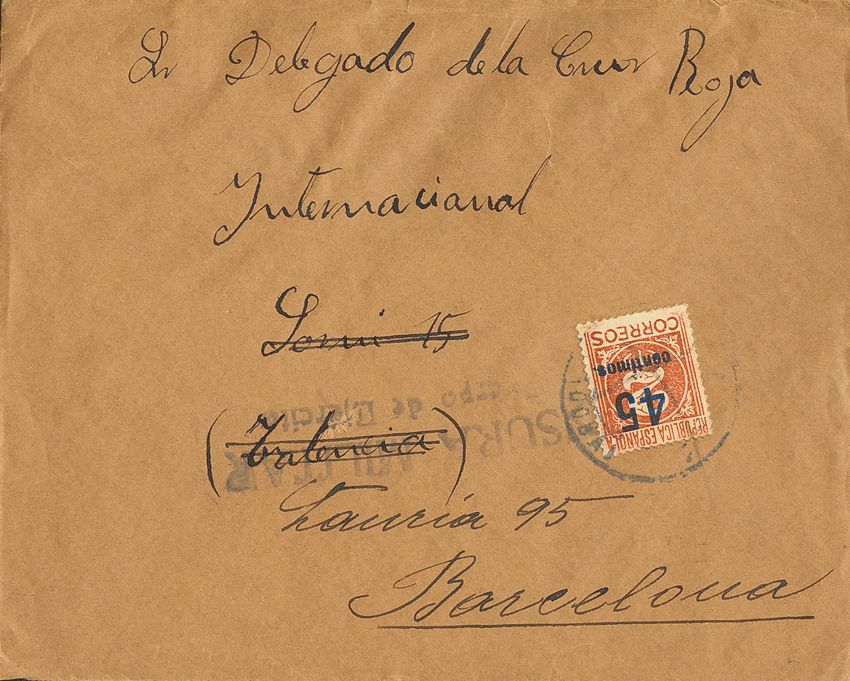 Sr Delegado de la Cruz Roja
Internacional
Sorni 15
CORREOS
centimos.
45
REPUBLICA ESPAÑOLA
Cuerpo de Ejército
CENSURA MILITAR
(Valencia)
Lauria 95
Barcelona